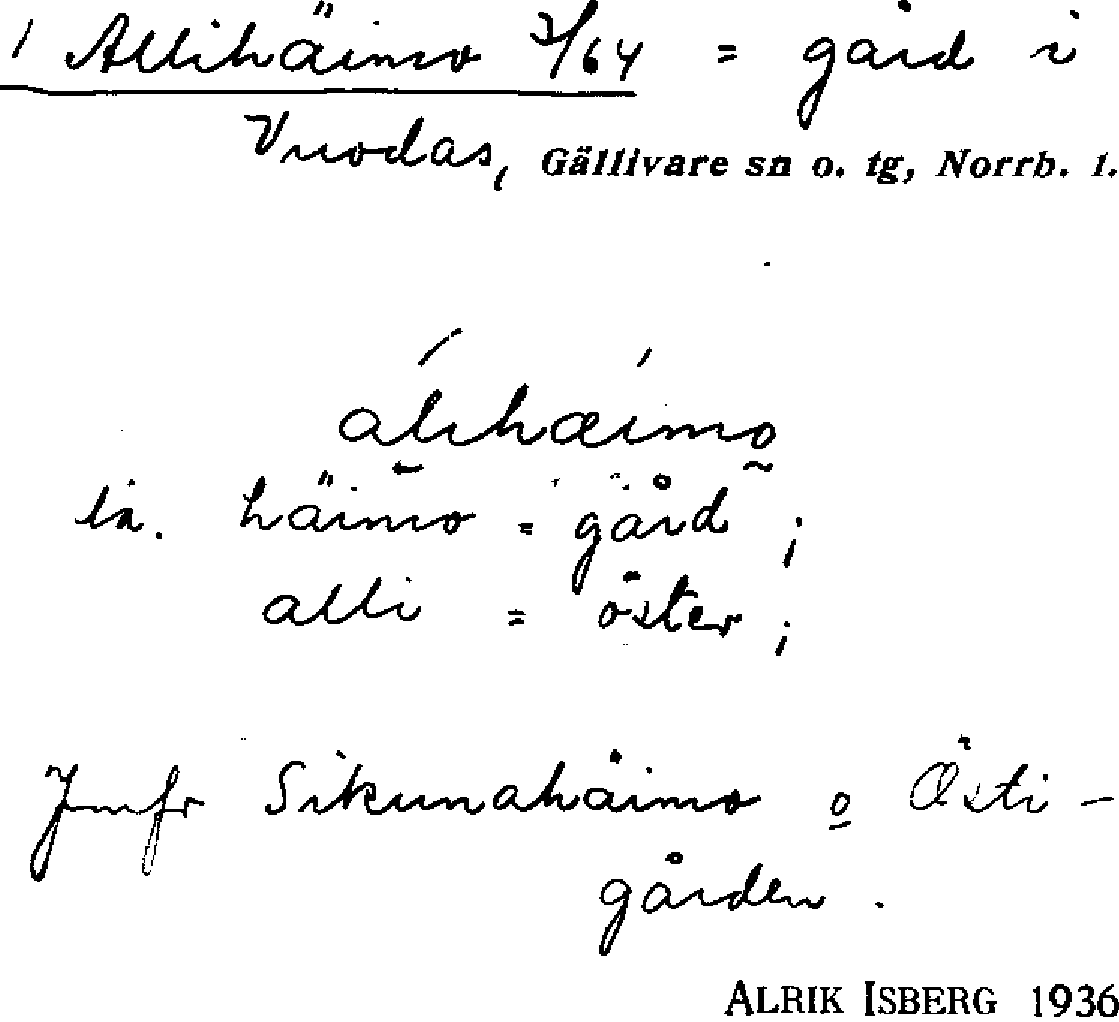 1 Allihäimo ⅔/64 = gård i
Vuodas, Gällivare sn o. tg, Norrb. l.
álihæimo
la. häimo = gård ;
alli = öster ;
Jmfr Sikunahäimo o Östi-
gården .
ALRIK ISBERG 1936